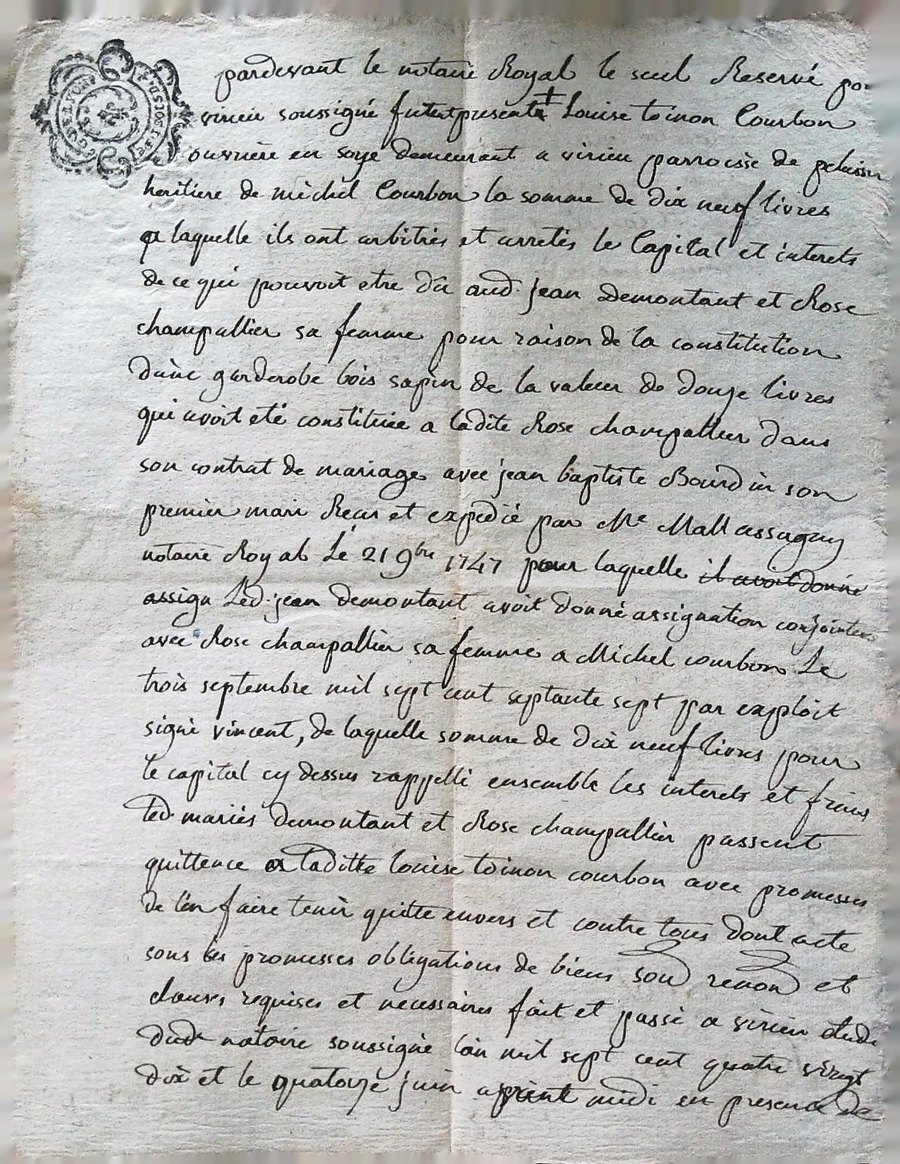 pardevant le notaire Royal le seul Reservé po
virieu soussigné furent presents + Louise toinon Courbon
ouvriere en soye demeurant a virieu parroisse de pelussin
heritiere de michel Courbon la somme de dix neuf livres
a laquelle ils ont arbitrés et arretés le Capital et interets
de ce qui pouvoit etre du aud. jean Demontant et Rose
champallier sa femme pour raison de la constitution
dune garderobe bois sapin de la valeur de douze livres
qui avoit eté constituée a ladite Rose champallier dans
son contrat de mariage avec jean baptiste Bourdin son
premier mari Receu et expedié par Me Mallassagny
notaire Royal Le 21 9bre 1747 pour laquelle il avoit donné
assign Led. jean demontant avoit donné assignation conjointem
avec Rose champallier sa femme a Michel courbon Le
trois septembre mil sept cent septante sept par exploit
signé vincent, de laquelle somme de dix neuf livres pour
le capital cy dessus rappellé ensemble les interets et frais
led. mariés demontant et Rose champallier passent
quittence a laditte louise toinon courbon avec promesses
de l'en faire tenir quitte envers et contre tous dont acte
sous les promesses obligations de biens soud renon et
clauses requises et necessaires fait et passé a virieu etude
dud. notaire soussigné l'an mil sept cent quatre vingt
dix et le quatorze juin midi en presence de